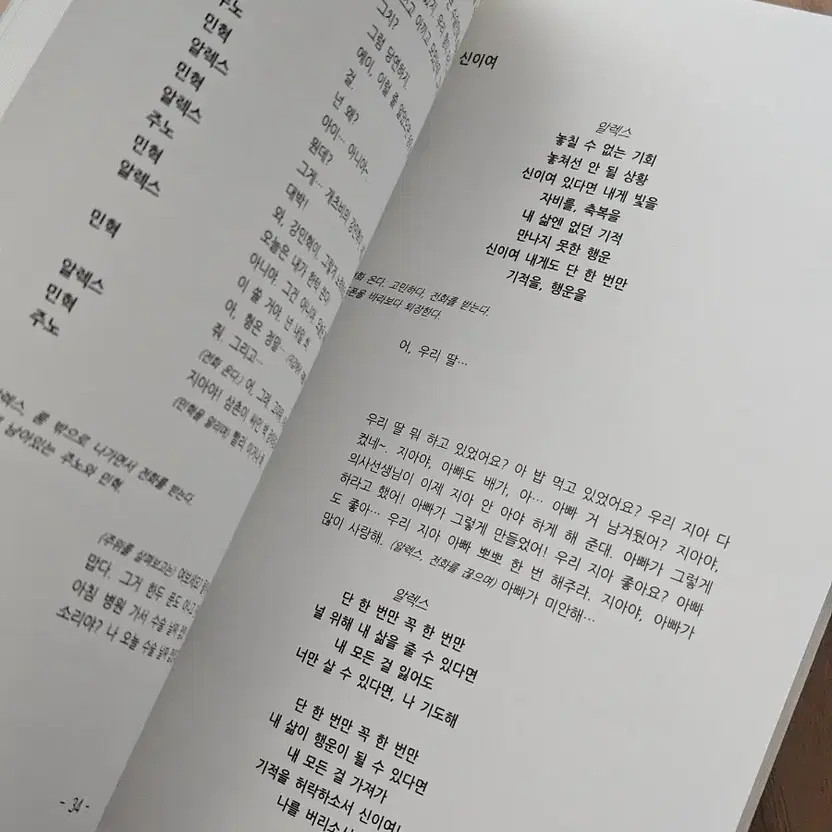 주노
민혁
알렉스
민혁
알렉스
주노
민혁
알렉스
민혁
알렉스
민혁
주노
그치?
그럼 당연하지.
걸.
넌 왜?
아이… 아니야~
뭔데?
대박!
와, 강민혁이, 그렇게
오늘은 내가 한턱 쏜다
아니야. 그건 아니야.
이 쏠 거야. 넌 내일 또
아, 형은 정말…
줘. 그리고…
(전화 온다.) 어, 그래,
지아야! 삼촌이 싸인
알렉스, 룸 밖으로 나가면서 전화를 받는다.
남아있는 주노와 민혁.
(주위를 살펴보고는)
맙다. 그거 한두 푼도 아니고
아침 병원 가서 수술 날짜
소리야? 나 오늘 수술 날짜
- 34 -
신이여
알렉스
놓칠 수 없는 기회
놓쳐선 안 될 상황
신이여 있다면 내게 빛을
자비를, 축복을
내 삶엔 없던 기적
만나지 못한 행운
신이여 내게도 단 한 번만
기적을, 행운을
온다. 고민하다, 전화를 받는다.
바라보다 퇴장한다.
어, 우리 딸…
우리 딸 뭐 하고 있었어요? 아 밥 먹고 있었어요? 우리 지아 다
컸네~. 지아야, 아빠도 배가, 아… 아빠 거 남겨뒀어? 지아야,
의사선생님이 이제 지아 안 아야 하게 해 준대. 아빠가 그렇게
하라고 했어! 아빠가 그렇게 만들었어! 우리 지아 좋아요? 아빠
도 좋아… 우리 지아 아빠 뽀뽀 한 번 해주라. 지아야, 아빠가
많이 사랑해. (알렉스, 전화를 끊으며) 아빠가 미안해…
알렉스
단 한 번만 꼭 한 번만
널 위해 내 삶을 줄 수 있다면
내 모든 걸 잃어도
너만 살 수 있다면, 나 기도해
단 한 번만 꼭 한 번만
내 삶이 행운이 될 수 있다면
내 모든 걸 가져가
기적을 허락하소서 신이여!
나를 버리소서